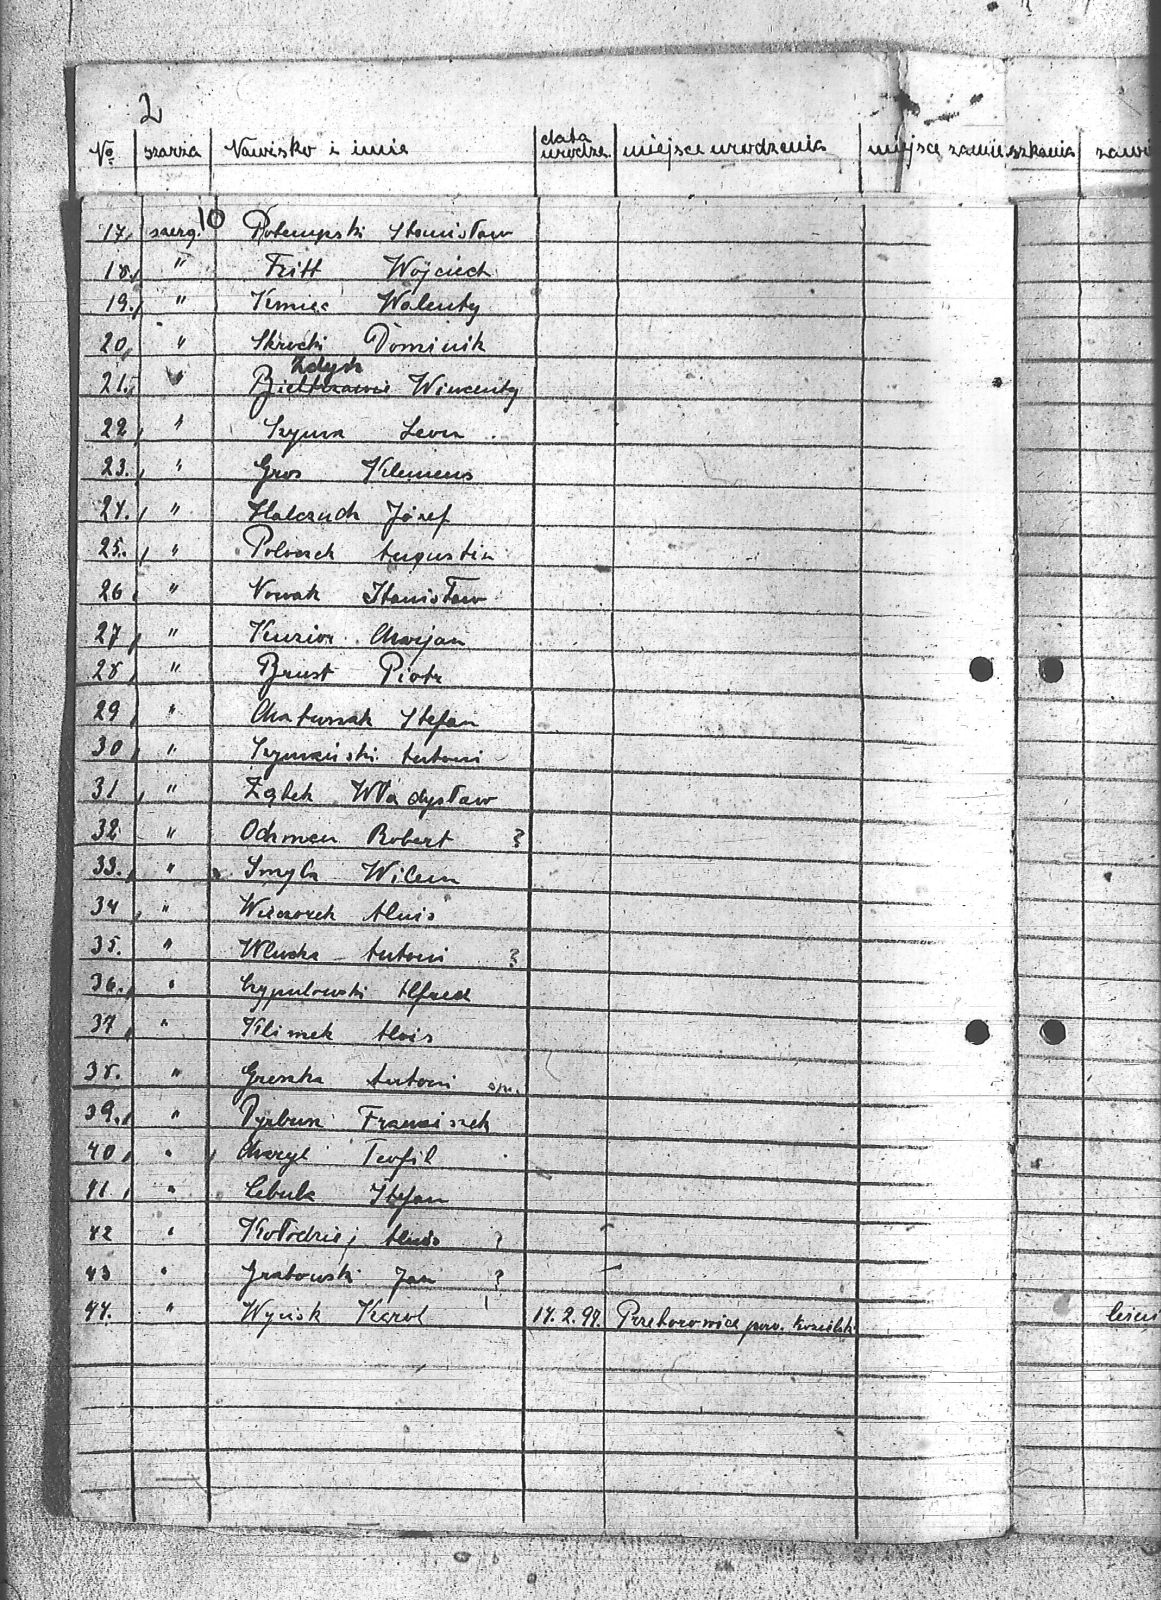 2
No szarża Nazwisko i imię data urodze. miejsce urodzenia miejsce zamieszkania
17. szereg. 10 Potempski Stanisław
18. " Fritt Wojciech
19. " Kmieć Walenty
20. " Skrocki Dominik
Zdych
21. " Wincenty
22. " Szyma Leon
23. " Gros Klemens
24. " Halczuch Józef
25. " Poloczek Augustin
26. " Nowak Stanisław
27. " Kuzior Marjan
28. " Brust Piotr
29. " Matuszak Stefan
30. " Szymański Antoni
31. " Ząbek Władysław
32. " Ochman Robert ?
33. " Smyla Wilem
34. " Wieczorek Alojs
35. " Antoni ?
36. " Szypulowski Alfred
37. " Klimek Alois
38. " Greszka Antoni
39. " Pyrbusz Franciszek
40. " Teofil
41. " Cebula Stefan
42. " Kołodziej Alojs ?
43. " Grabowski Jan ?
44. " Wycisk Karol 14.2.97. pow.